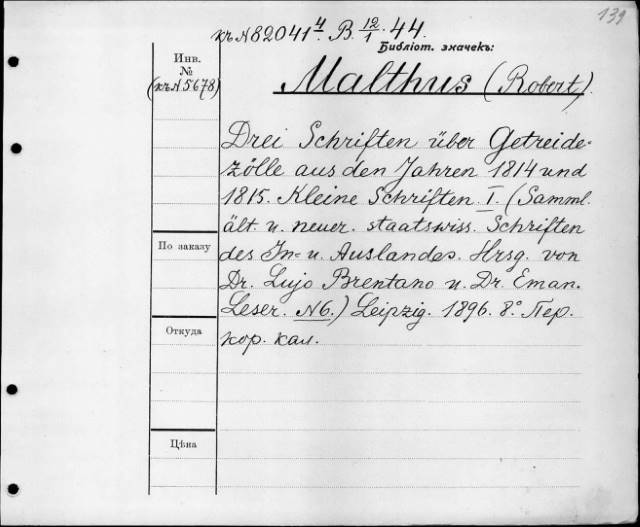 139
къ N 82041 4. B. 12/1 - 44.
Библіот. значекъ:
Инв.
№
(къ N 5678)
Malthus (Robert).
Drei Schriften über Getreide-
zölle aus den Jahren 1814 und
1815. Kleine Schriften. I. (Samml.
ält. u. neuer. staatswiss. Schriften
По заказу
des In- u. Auslandes. Hrsg. von
Dr. Lujo Brentano u. Dr. Eman.
Leser. N 6.) Leipzig. 1896. 8.° Пер.
Откуда
кор. кал.
Цѣна